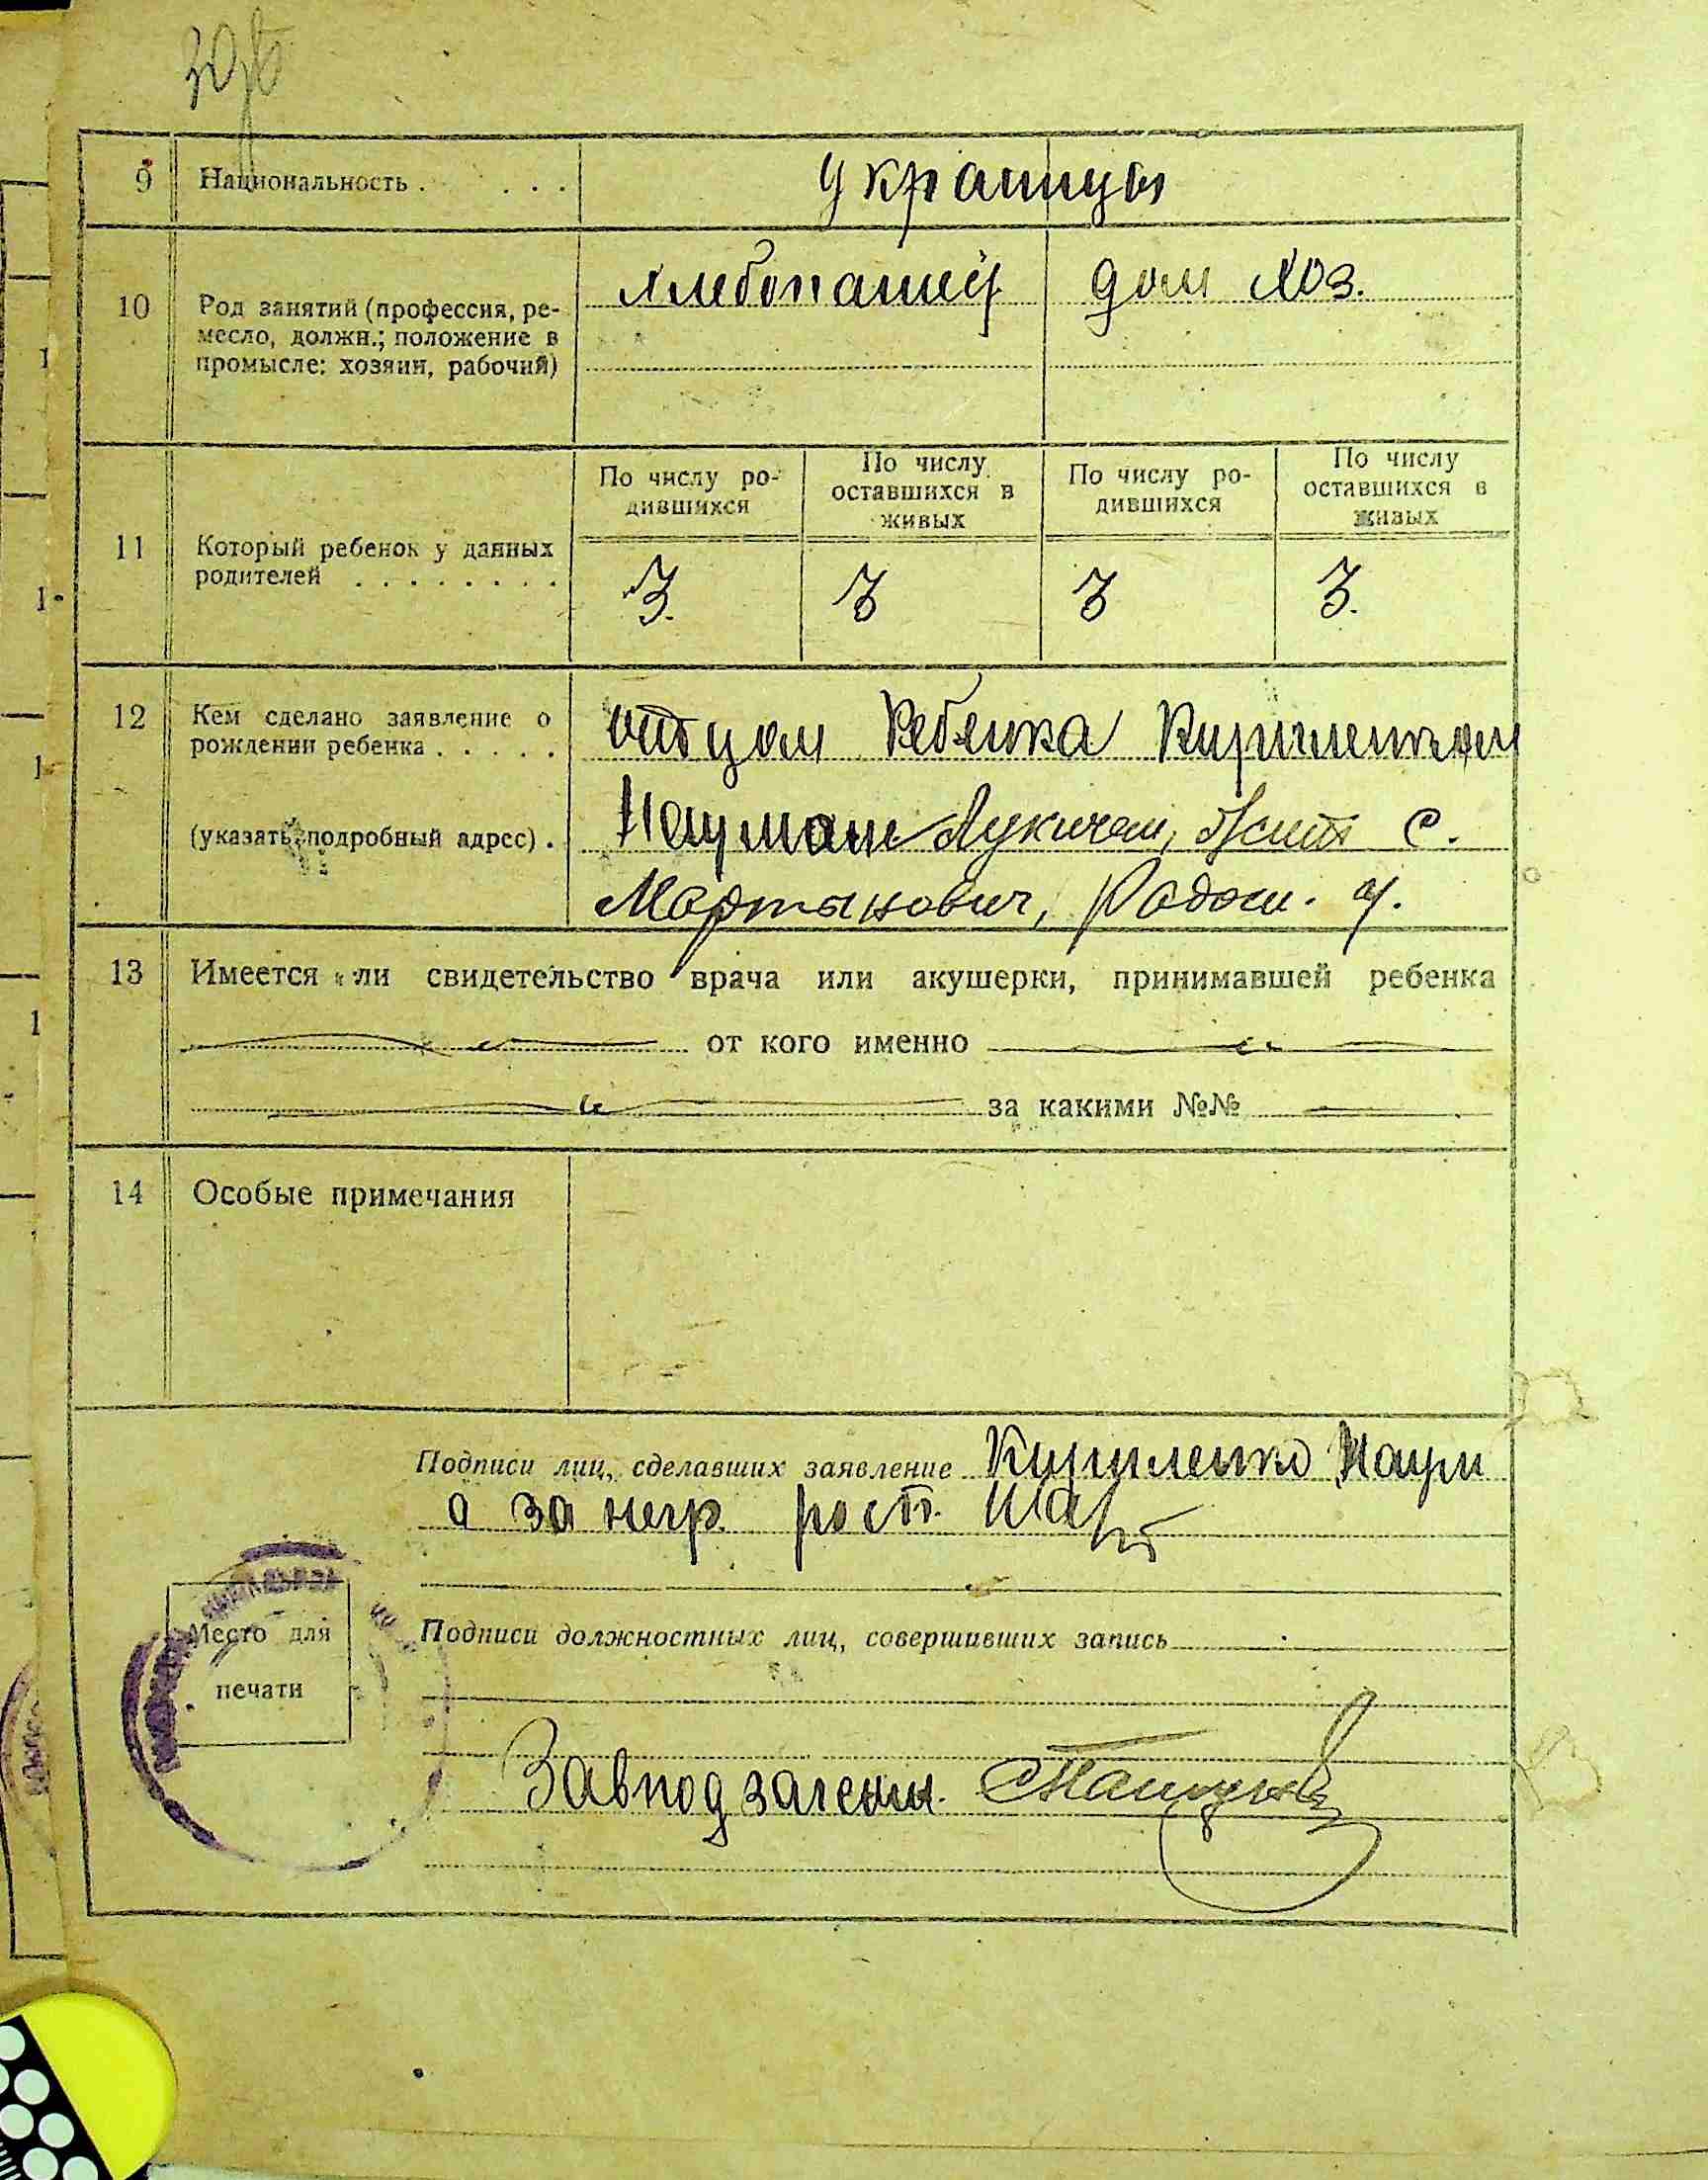 9 Национальность . . . . украинцы
10 Род занятий (профессия, ре-
месло, должн.; положение в
промысле: хозяин, рабочий)
хлебопашец дом хоз.
По числу ро-
дившихся
По числу
оставшихся в
живых
По числу ро-
дившихся
По числу
оставшихся в
живых
11 Который ребенок у данных
родителей . . . . . . . .
3. 3 3 3.
12 Кем сделано заявление о
рождении ребенка . . . . .
отцом ребенка Кириленком
(указать подробный адрес) .
Наумом Лукичем, жит с.
Мартынович, Радом. у.
13 Имеется ли свидетельство врача или акушерки, принимавшей ребенка
от кого именно
за какими №№
14 Особые примечания
Подписи лиц, сделавших заявление Кириленко Наум
а за негр. рост.
Место для
печати
Подписи должностных лиц, совершивших запись
Завподзагсом.